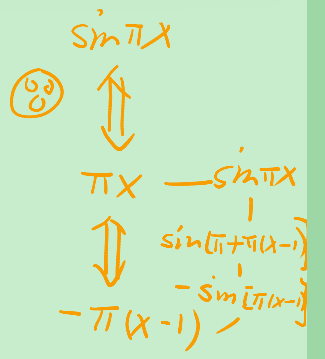 sinπx
πx — sinπx
sin[π+π(x-1)]
-sin[π(x-1)]
-π(x-1)